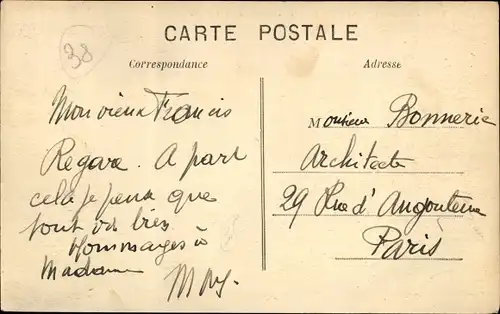 38
CARTE POSTALE
Correspondance
Adresse
Mon vieux Francis
Regare. A part
cela je peux que
tout va bien
Hommages à
Madame
Monsieur Bonnerie
Architecte
29 Rue d'Angouleme
Paris